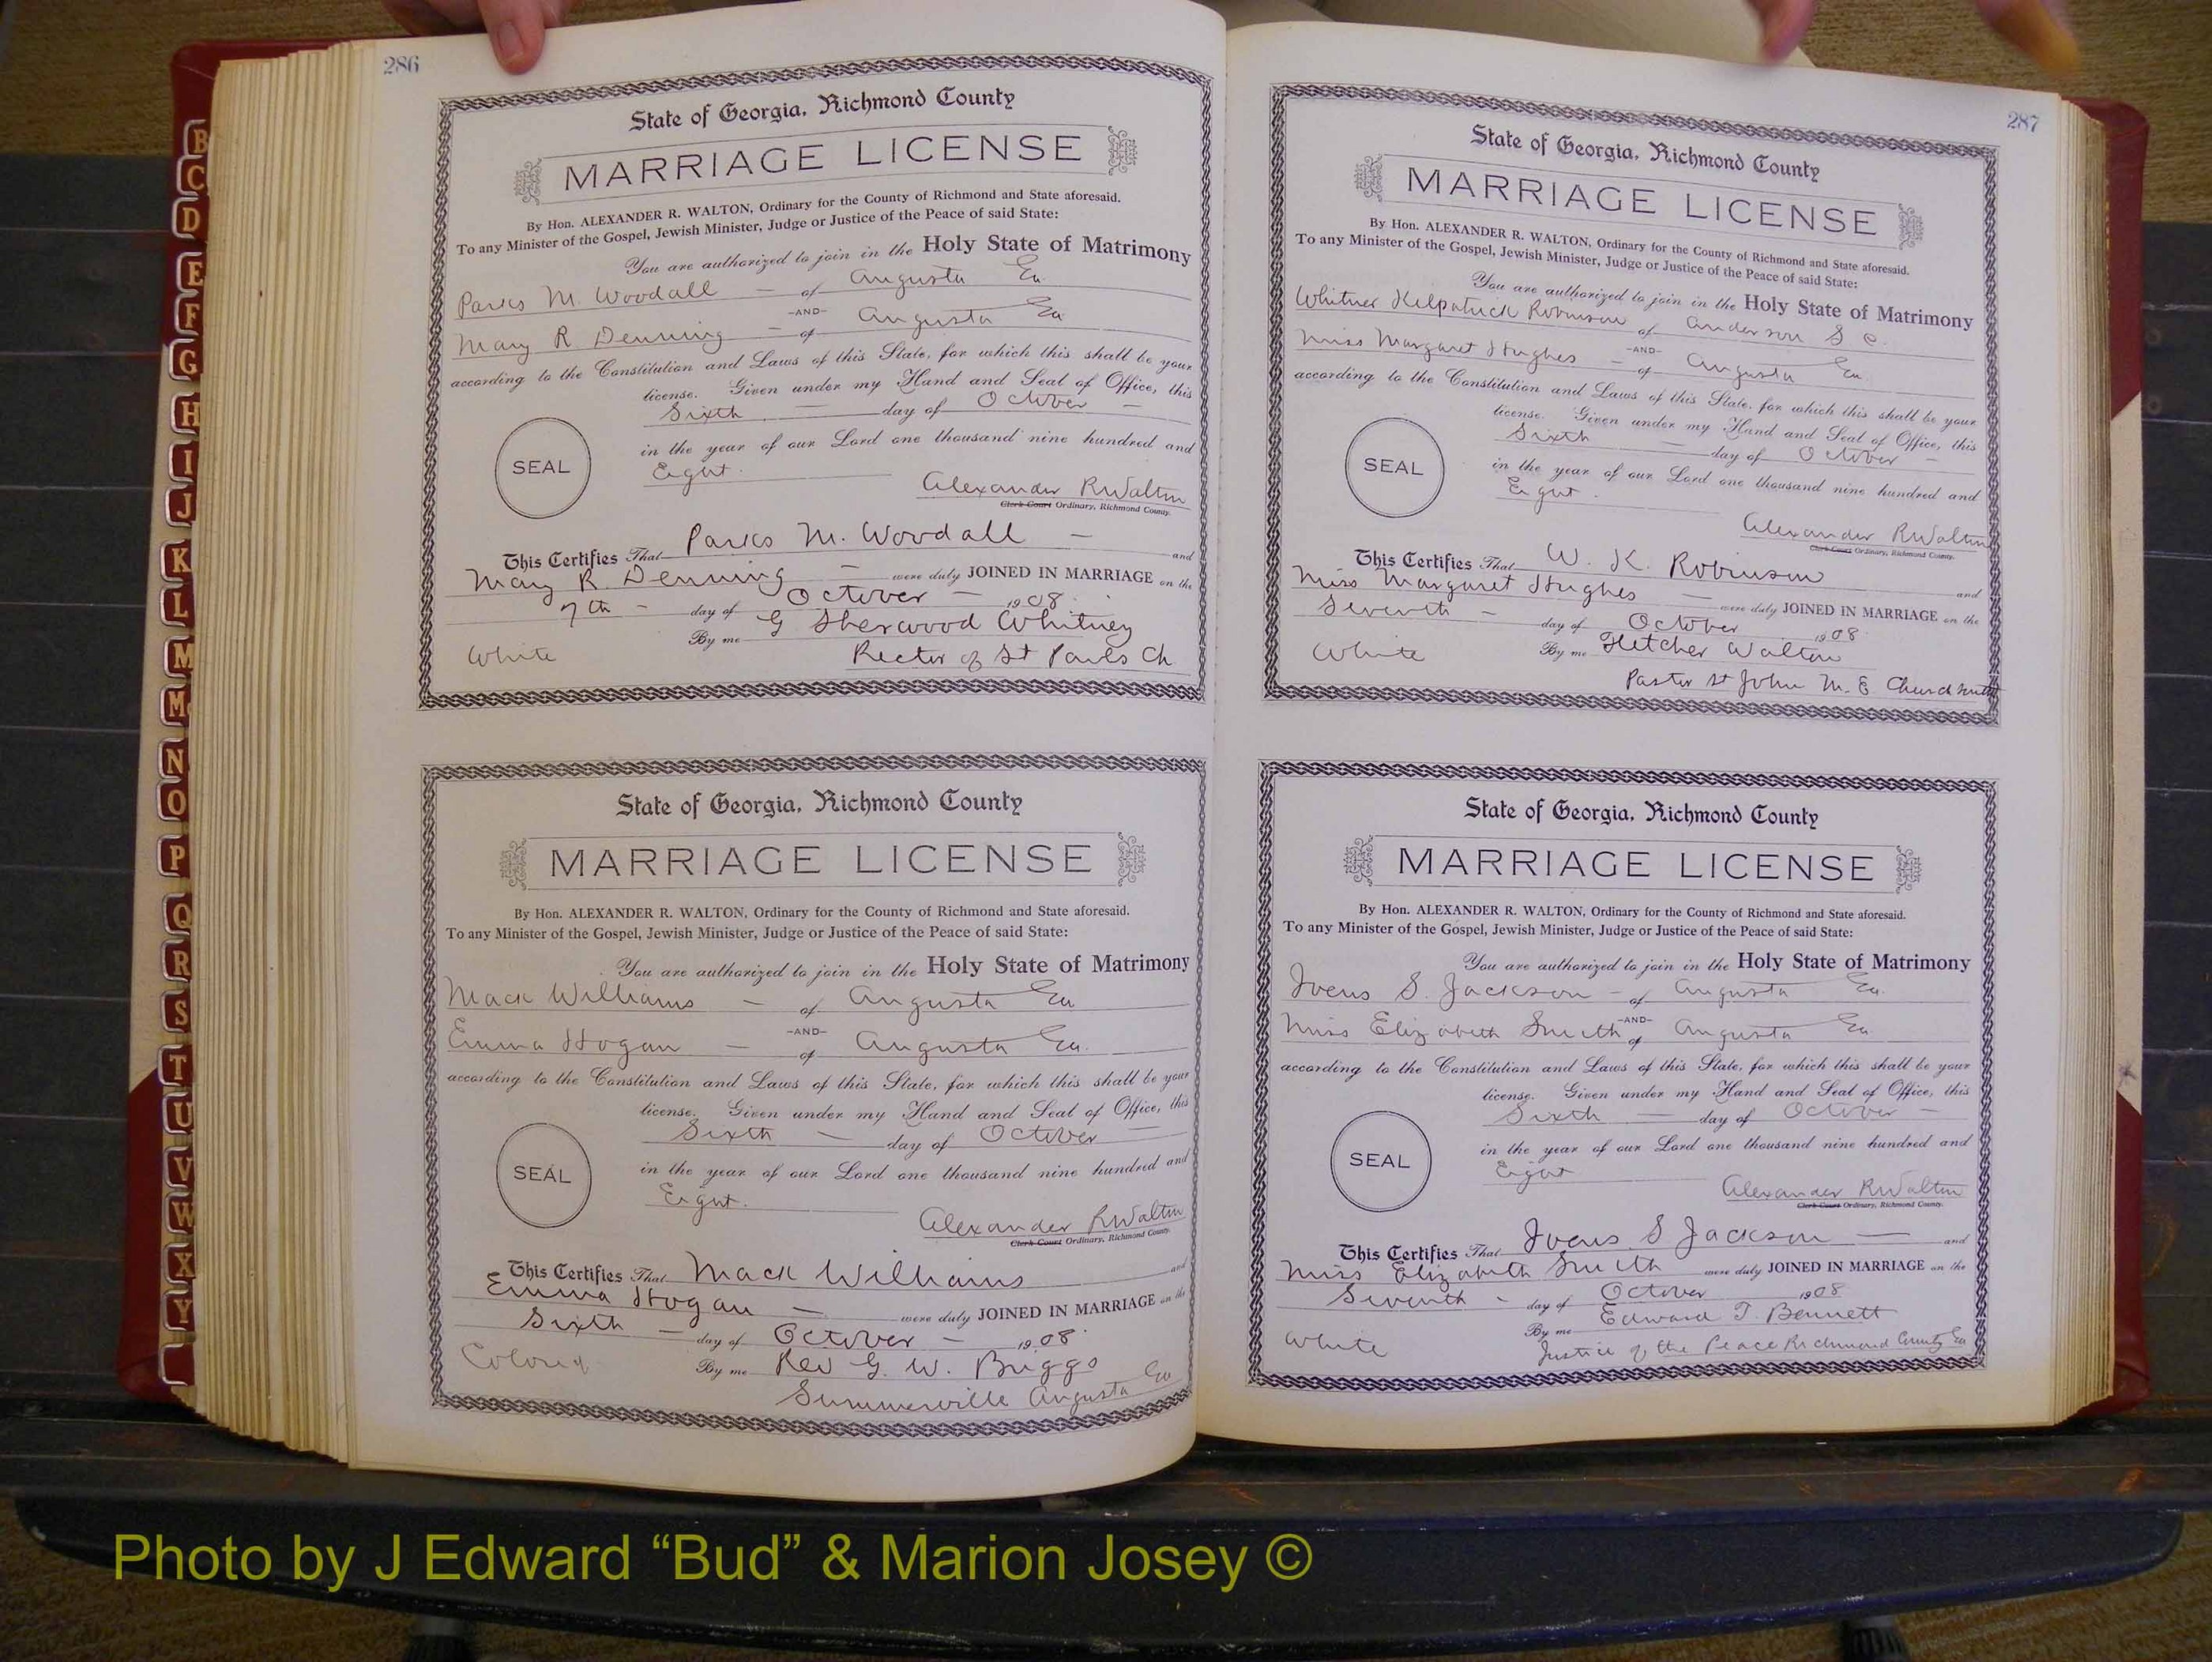 286
State of Georgia, Richmond County
MARRIAGE LICENSE
By Hon. ALEXANDER R. WALTON, Ordinary for the County of Richmond and State aforesaid.
To any Minister of the Gospel, Jewish Minister, Judge or Justice of the Peace of said State:
You are authorized to join in the Holy State of Matrimony
Parks M. Woodall — of Augusta Ga.
-AND-
Mary R Denning — of Augusta Ga
according to the Constitution and Laws of this State, for which this shall be your
license. Given under my Hand and Seal of Office, this
Sixth — day of October —
SEAL
in the year of our Lord one thousand nine hundred and
Eight.
Alexander R Walton
Clerk Court Ordinary, Richmond County.
This Certifies That Parks M. Woodall — and
Mary R. Denning — were duly JOINED IN MARRIAGE on the
7th — day of October — 1908.
By me G Sherwood Whitney
White Rector of St Pauls Ch
State of Georgia, Richmond County
MARRIAGE LICENSE
By Hon. ALEXANDER R. WALTON, Ordinary for the County of Richmond and State aforesaid.
To any Minister of the Gospel, Jewish Minister, Judge or Justice of the Peace of said State:
You are authorized to join in the Holy State of Matrimony
Mack Williams — of Augusta Ga
-AND-
Emma Hogan — of Augusta Ga.
according to the Constitution and Laws of this State, for which this shall be your
license. Given under my Hand and Seal of Office, this
Sixth — day of October —
SEAL
in the year of our Lord one thousand nine hundred and
Eight.
Alexander R Walton
Clerk Court Ordinary, Richmond County.
This Certifies That Mack Williams and
Emma Hogan — were duly JOINED IN MARRIAGE on the
Sixth — day of October — 1908.
Colored By me Rev G. W. Briggs
Summerville Augusta Ga
287
State of Georgia, Richmond County
MARRIAGE LICENSE
By Hon. ALEXANDER R. WALTON, Ordinary for the County of Richmond and State aforesaid.
To any Minister of the Gospel, Jewish Minister, Judge or Justice of the Peace of said State:
You are authorized to join in the Holy State of Matrimony
Whitner Kilpatrick Robinson of Anderson S C.
-AND-
Miss Margaret Hughes — of Augusta Ga
according to the Constitution and Laws of this State, for which this shall be your
license. Given under my Hand and Seal of Office, this
Sixth — day of October —
SEAL
in the year of our Lord one thousand nine hundred and
Eight.
Alexander R Walton
Clerk Court Ordinary, Richmond County.
This Certifies That W. K. Robinson and
Miss Margaret Hughes — were duly JOINED IN MARRIAGE on the
Seventh — day of October 1908
White By me Fletcher Walton
Pastor St John M. E Church
State of Georgia, Richmond County
MARRIAGE LICENSE
By Hon. ALEXANDER R. WALTON, Ordinary for the County of Richmond and State aforesaid.
To any Minister of the Gospel, Jewish Minister, Judge or Justice of the Peace of said State:
You are authorized to join in the Holy State of Matrimony
S. Jackson — of Augusta Ga.
-AND-
Miss Elizabeth Smith of Augusta Ga
according to the Constitution and Laws of this State, for which this shall be your
license. Given under my Hand and Seal of Office, this
Sixth — day of October —
SEAL
in the year of our Lord one thousand nine hundred and
Eight
Alexander R Walton
Clerk Court Ordinary, Richmond County.
This Certifies That S Jackson — and
Miss Elizabeth Smith were duly JOINED IN MARRIAGE on the
Seventh - day of October 1908
By me Edward T. Bennett
White Justice of the Peace Richmond County Ga
B
C
D
E
F
G
H
I
J
K
L
M
M
N
O
P
Q
R
S
T
U
V
W
X
Y
Photo by J Edward “Bud” & Marion Josey ©